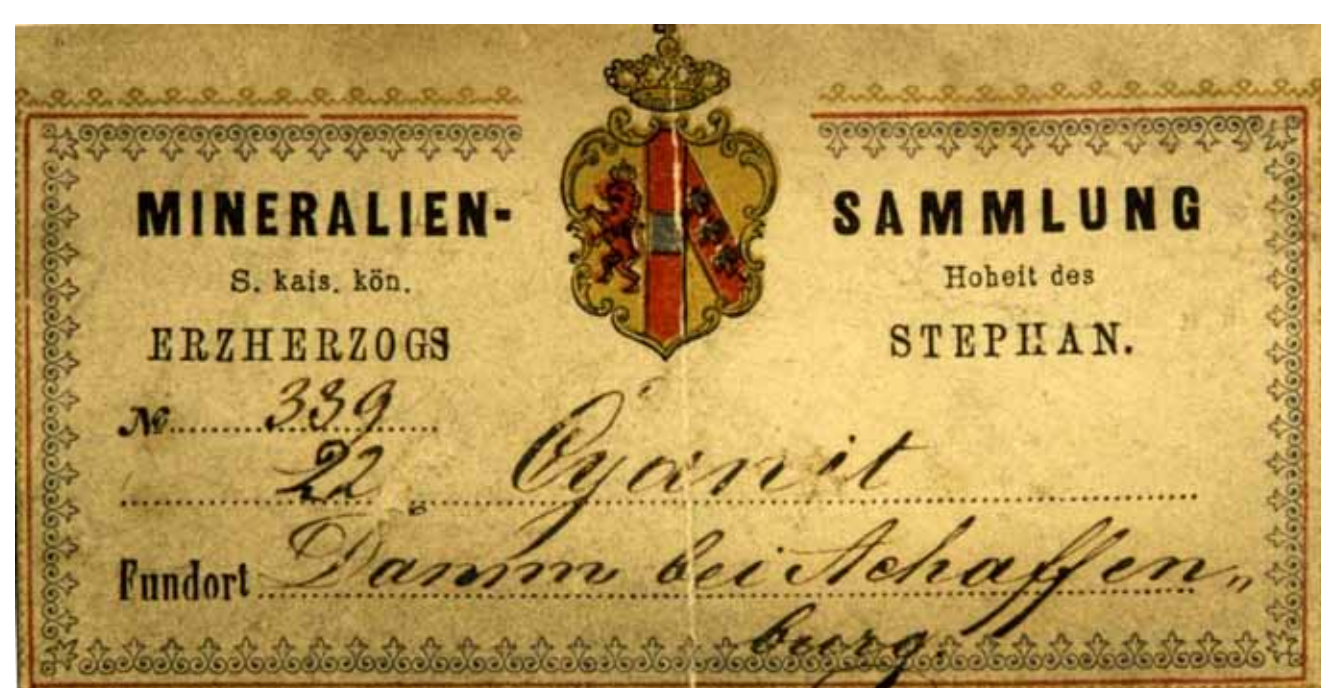 MINERALIEN- SAMMLUNG
S. kais. kön. Hoheit des
ERZHERZOGS STEPHAN.
No 339
22 Cyanit
Fundort Damm bei Achaffen„
burg.